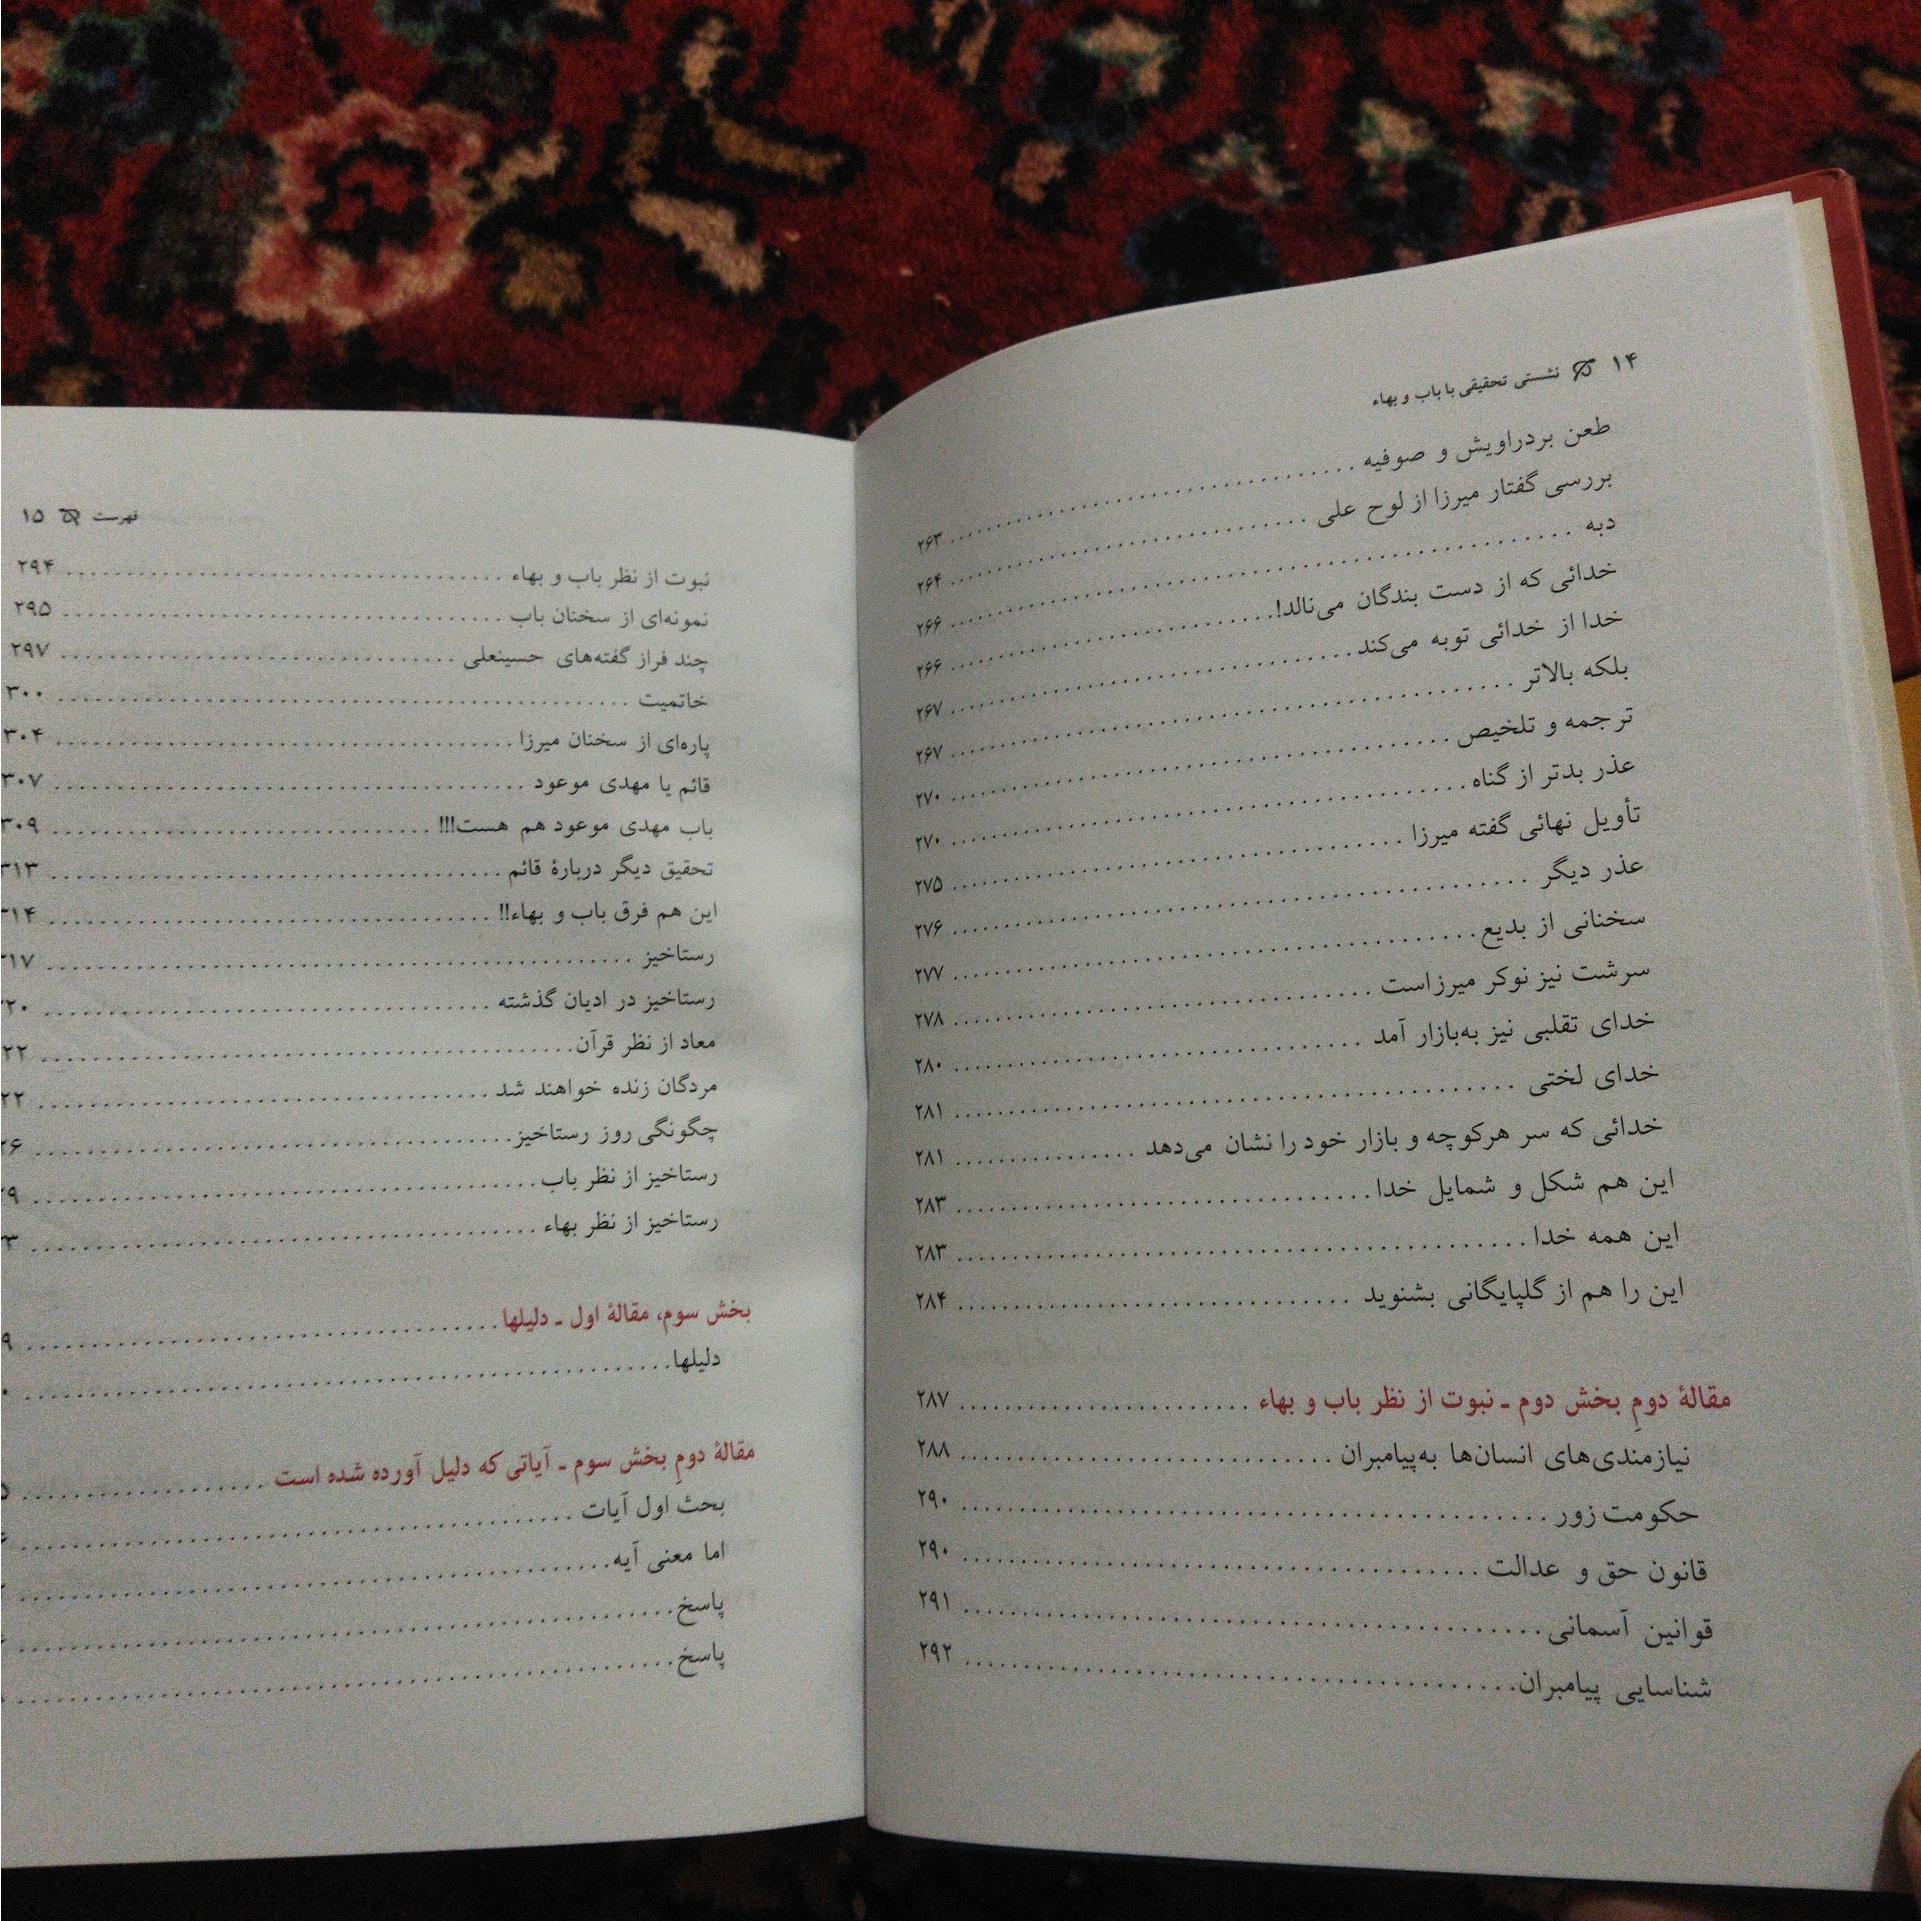 ۱۴ نشستی تحقیقی با باب و بهاء
طعن بر دراویش و صوفیه ........ ۲۶۳
بررسی گفتار میرزا از لوح علی ........ ۲۶۴
دبه ........ ۲۶۶
خدائی که از دست بندگان می‌نالد! ........ ۲۶۶
خدا از خدائی توبه می‌کند ........ ۲۶۷
بلکه بالاتر ........ ۲۶۷
ترجمه و تلخیص ........ ۲۷۰
عذر بدتر از گناه ........ ۲۷۰
تأویل نهائی گفته میرزا ........ ۲۷۵
عذر دیگر ........ ۲۷۶
سخنانی از بدیع ........ ۲۷۷
سرشت نیز نوکر میرزاست ........ ۲۷۸
خدای تقلبی نیز به‌بازار آمد ........ ۲۸۰
خدای لختی ........ ۲۸۱
خدائی که سر هرکوچه و بازار خود را نشان می‌دهد ........ ۲۸۱
این هم شکل و شمایل خدا ........ ۲۸۳
این همه خدا ........ ۲۸۳
این را هم از گلپایگانی بشنوید ........ ۲۸۴
مقالهٔ دومِ بخش دوم ـ نبوت از نظر باب و بهاء ........ ۲۸۷
نیازمندی‌های انسان‌ها به‌پیامبران ........ ۲۸۸
حکومت زور ........ ۲۹۰
قانون حق و عدالت ........ ۲۹۰
قوانین آسمانی ........ ۲۹۱
شناسایی پیامبران ........ ۲۹۲
فهرست ۱۵
نبوت از نظر باب و بهاء ........ ۲۹۴
نمونه‌ای از سخنان باب ........ ۲۹۵
چند فراز گفته‌های حسینعلی ........ ۲۹۷
خاتمیت ........ ۳۰۰
پاره‌ای از سخنان میرزا ........ ۳۰۴
قائم یا مهدی موعود ........ ۳۰۷
باب مهدی موعود هم هست!!! ........ ۳۰۹
تحقیق دیگر دربارهٔ قائم ........ ۳۱۳
این هم فرق باب و بهاء!! ........ ۳۱۴
رستاخیز ........ ۳۱۷
رستاخیز در ادیان گذشته ........
معاد از نظر قرآن ........
مردگان زنده خواهند شد ........
چگونگی روز رستاخیز ........
رستاخیز از نظر باب ........
رستاخیز از نظر بهاء ........
بخش سوم، مقالهٔ اول ـ دلیلها ........
دلیلها ........
مقالهٔ دومِ بخش سوم ـ آیاتی که دلیل آورده شده است ........
بحث اول آیات ........
اما معنی آیه ........
پاسخ ........
پاسخ ........